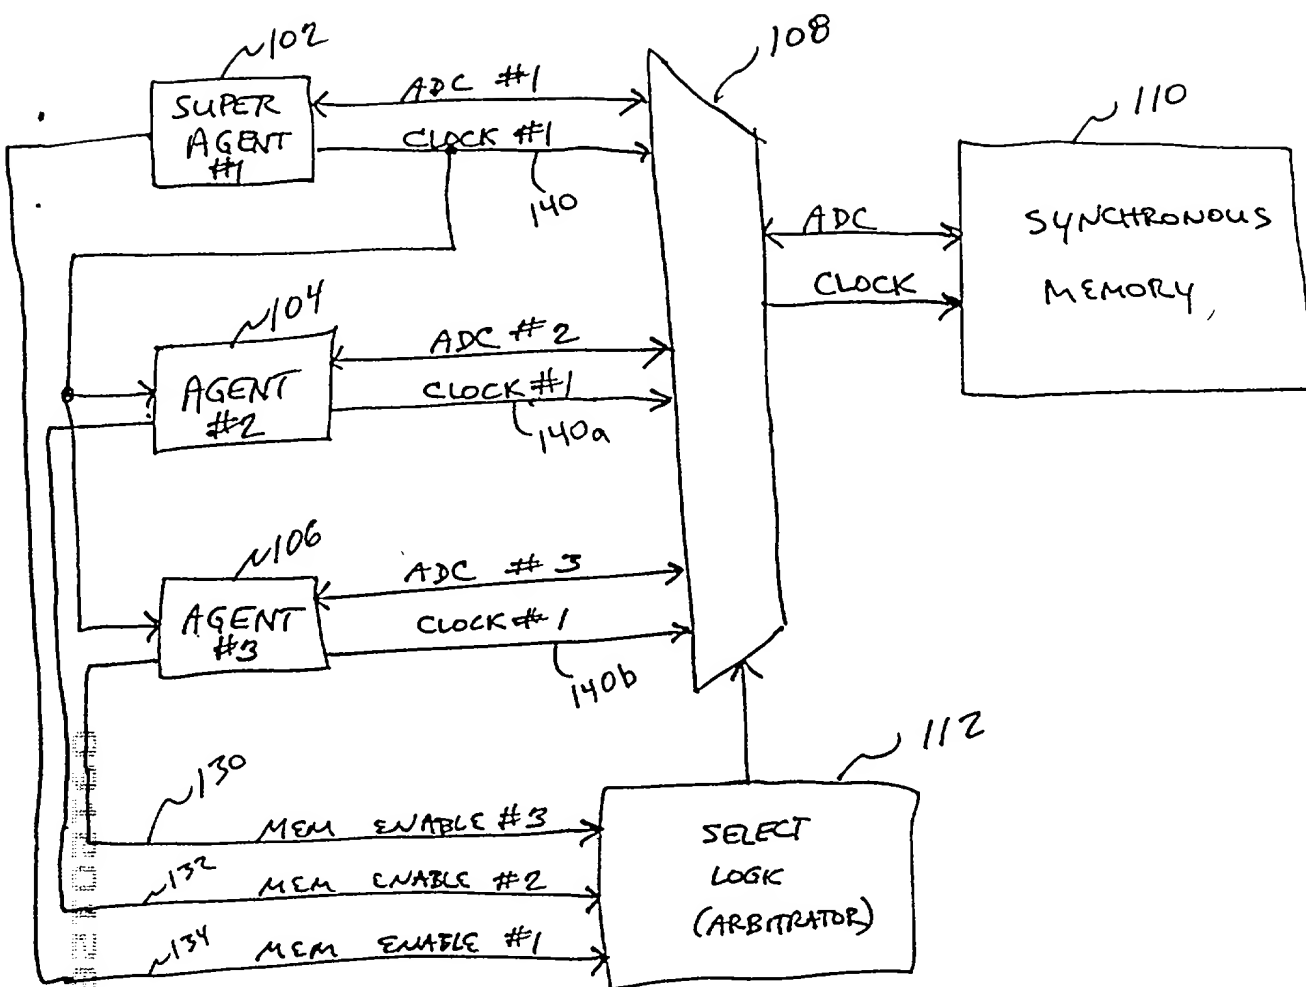 102
108
SUPER
AGENT
#1
ADC #1
CLOCK #1
140
110
SYNCHRONOUS
MEMORY
ADC
CLOCK
104
AGENT
#2
ADC #2
CLOCK #1
140a
106
AGENT
#3
ADC #3
CLOCK #1
140b
112
130
MEM ENABLE #3
132
MEM ENABLE #2
134
MEM ENABLE #1
SELECT
LOGIC
(ARBITRATOR)